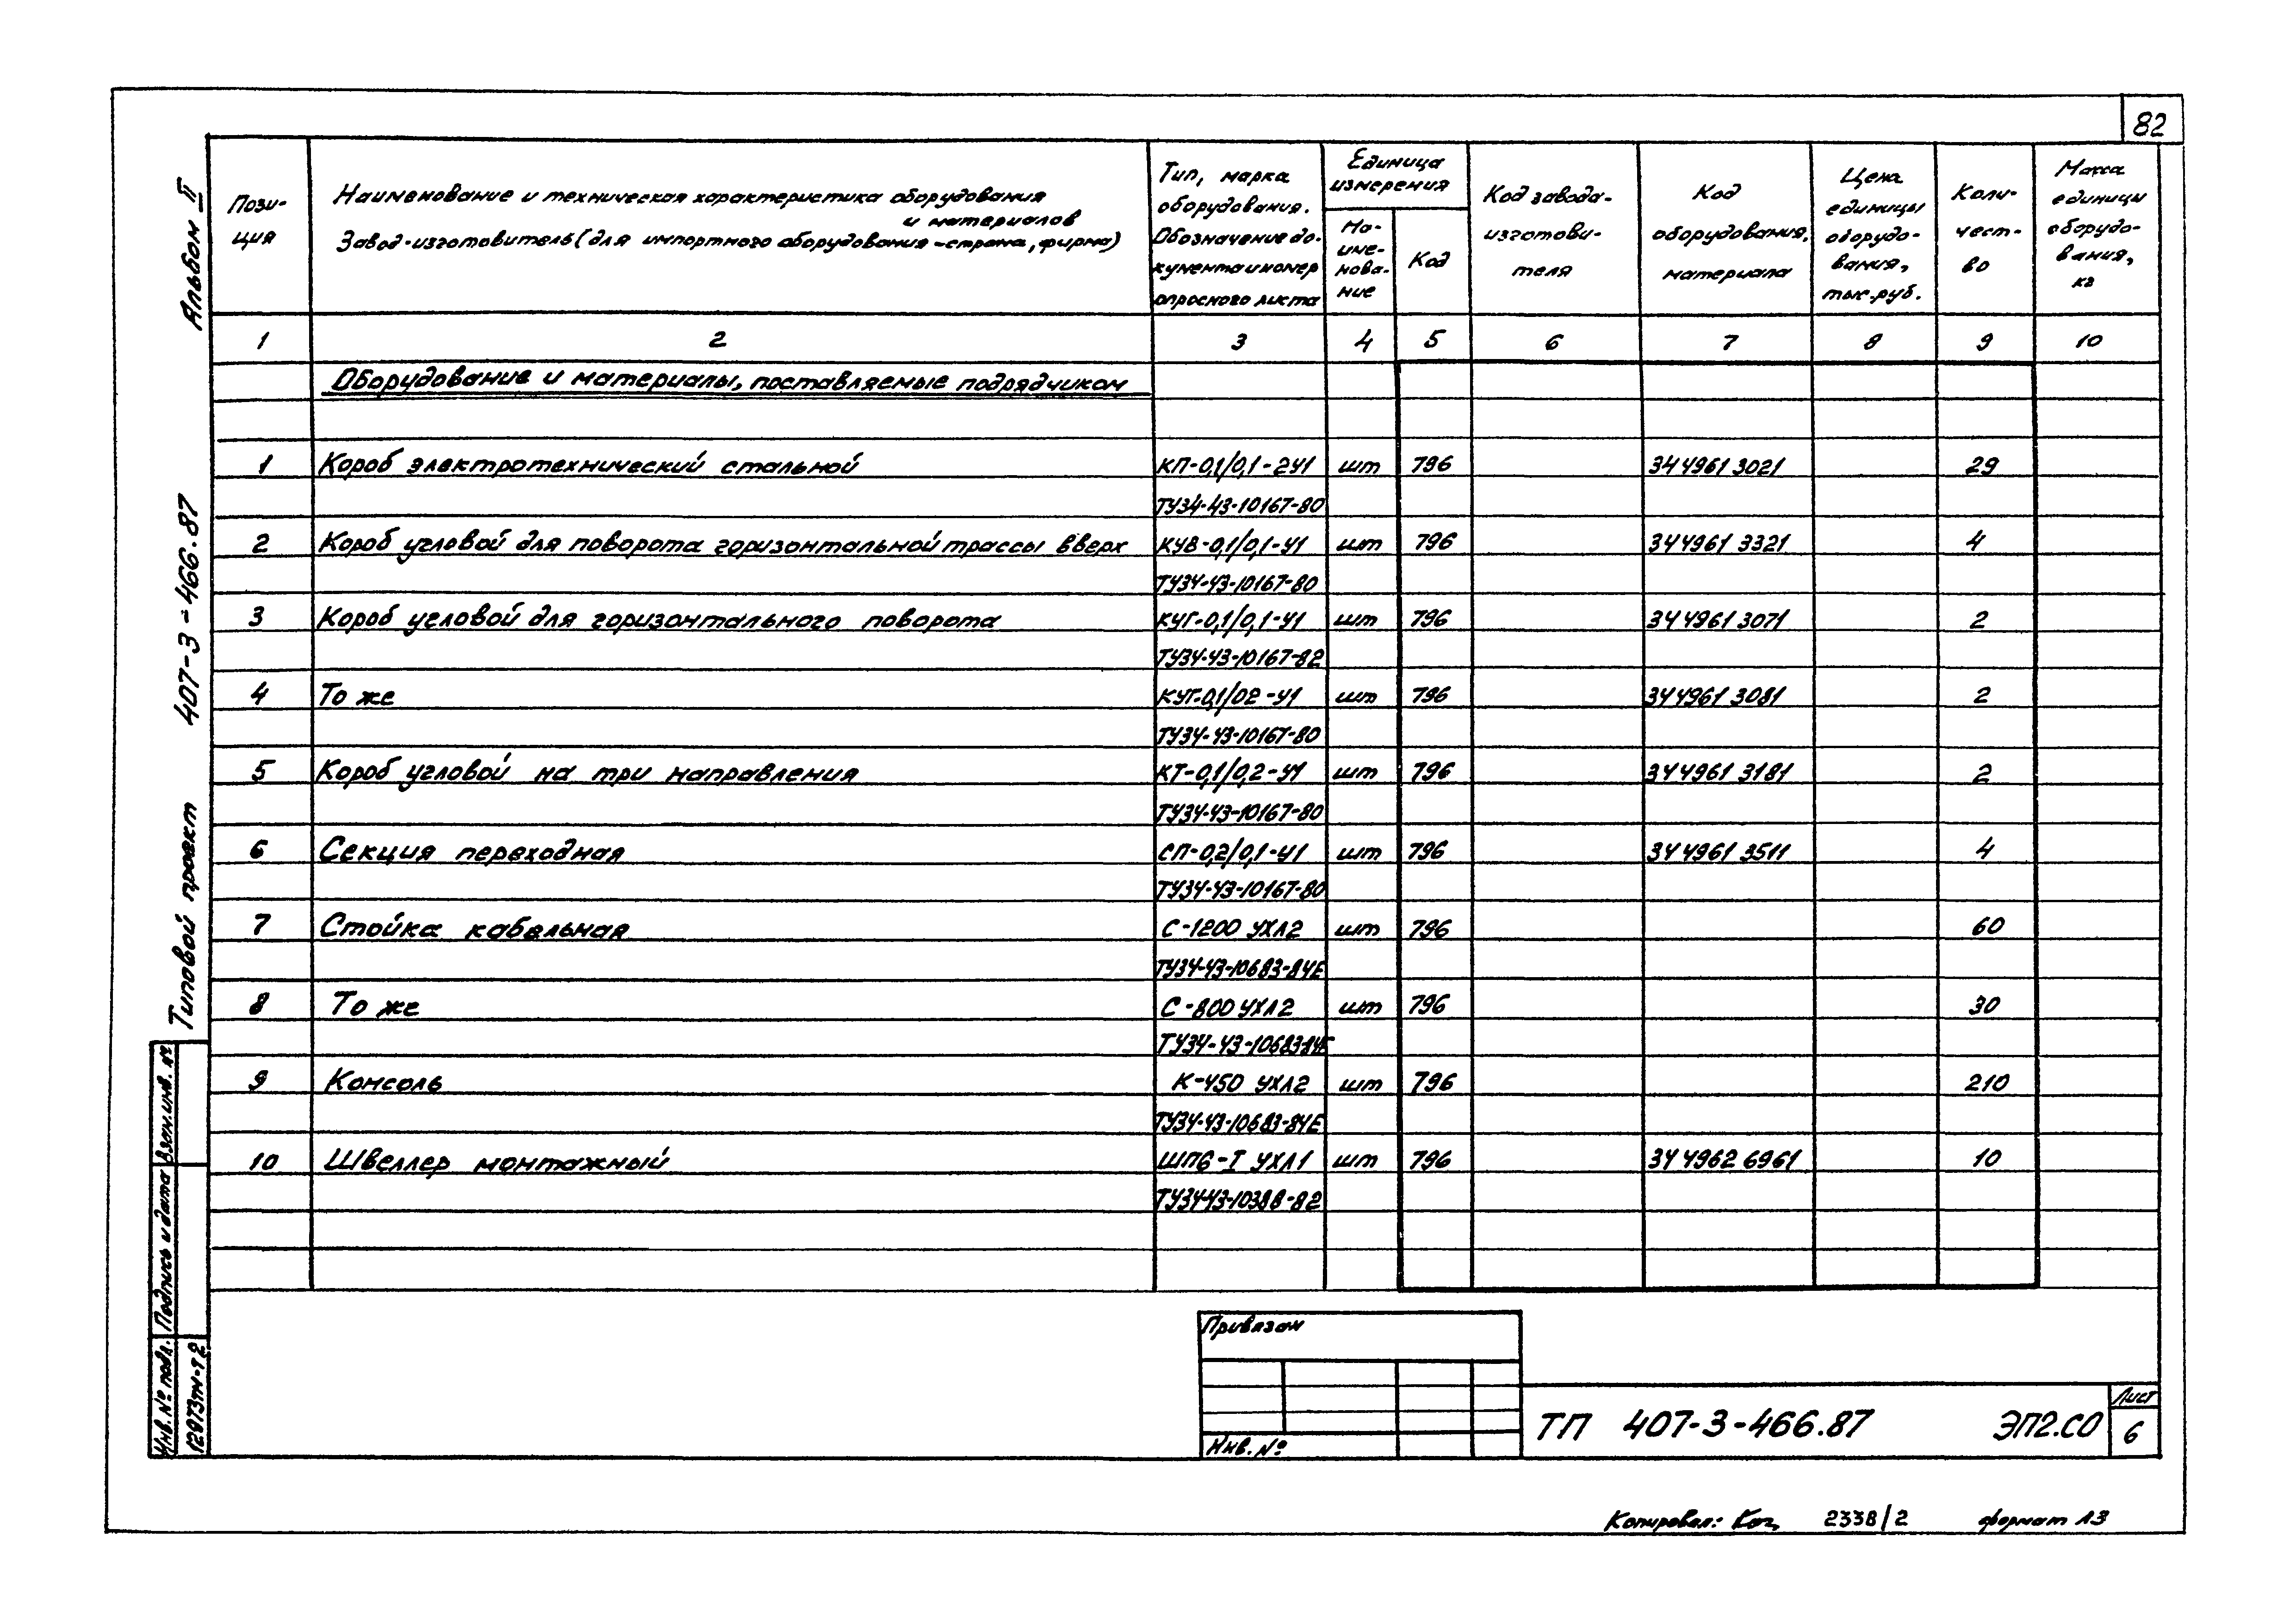 82
Альбом II
407-3-466.87
Типовой проект
Взам.инв. №
Подпись и дата
Инв. № подл.
12973тм-т2
Пози-
ция
Наименование и техническая характеристика оборудования
и материалов
Завод-изготовитель (для импортного оборудования - страна, фирма)
Тип, марка
оборудования.
Обозначение до-
кумента и номер
опросного листа
Единица
измерения
На-
име-
нова-
ние
Код
Код завода-
изготови-
теля
Код
оборудования,
материала
Цена
единицы
оборудо-
вания,
тыс.руб.
Коли-
чест-
во
Масса
единицы
оборудо-
вания,
кг
1 2 3 4 5 6 7 8 9 10
Оборудование и материалы, поставляемые подрядчиком
1 Короб электротехнический стальной КП-0,1/0,1-2У1 шт 796 34 4961 3021 29
ТУ34-43-10167-80
2 Короб угловой для поворота горизонтальной трассы вверх КУВ-0,1/0,1-У1 шт 796 34 4961 3321 4
ТУ34-43-10167-80
3 Короб угловой для горизонтального поворота КУГ-0,1/0,1-У1 шт 796 34 4961 3071 2
ТУ34-43-10167-82
4 То же КУГ-0,1/02-У1 шт 796 34 4961 3081 2
ТУ34-43-10167-80
5 Короб угловой на три направления КТ-0,1/0,2-У1 шт 796 34 4961 3181 2
ТУ34-43-10167-80
6 Секция переходная СП-0,2/0,1-У1 шт 796 34 4961 3511 4
ТУ34-43-10167-80
7 Стойка кабельная С-1200 УХЛ2 шт 796 60
ТУ34-43-10683-84Е
8 То же С-800 УХЛ2 шт 796 30
ТУ34-43-10683-84Е
9 Консоль К-450 УХЛ2 шт 796 210
ТУ34-43-10683-84Е
10 Швеллер монтажный ШП6-I УХЛ1 шт 796 34 4962 6961 10
ТУ34-43-10388-82
Привязан
Инв. №
ТП 407-3-466.87 ЭП2.СО
Лист
6
Копировал: 2338/2 формат А3